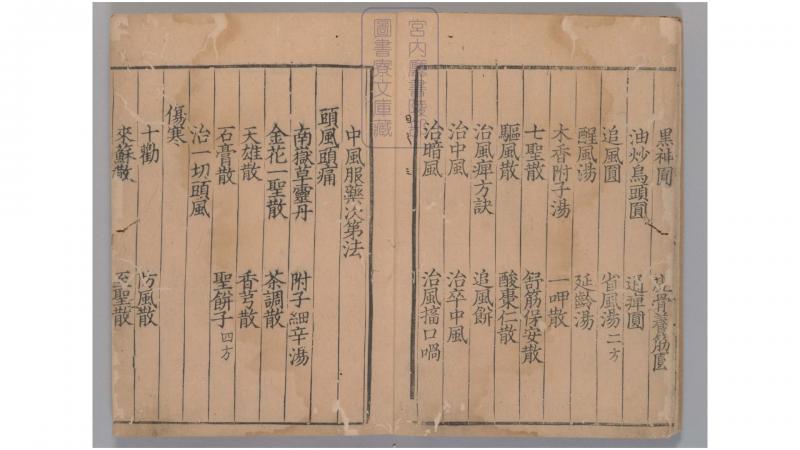 黒神圓
壯骨養筋圓
油炒烏頭圓
追痺圓
追風圓
省風湯二方
醒風湯
延齡湯
木香附子湯
一呷散
七聖散
舒筋保安散
驅風散
酸棗仁散
治風痺方訣
追風餅
治中風
治卒中風
治暗風
治風搐口喎
宮内廳書陵部
圖書寮文庫藏
中風服藥次第法
頭風頭痛
南嶽草靈丹
附子細辛湯
金花一聖散
茶調散
天雄散
香芎散
石膏散
聖餅子四方
治一切頭風
傷寒
十勸
防風散
來蘇散
至聖散